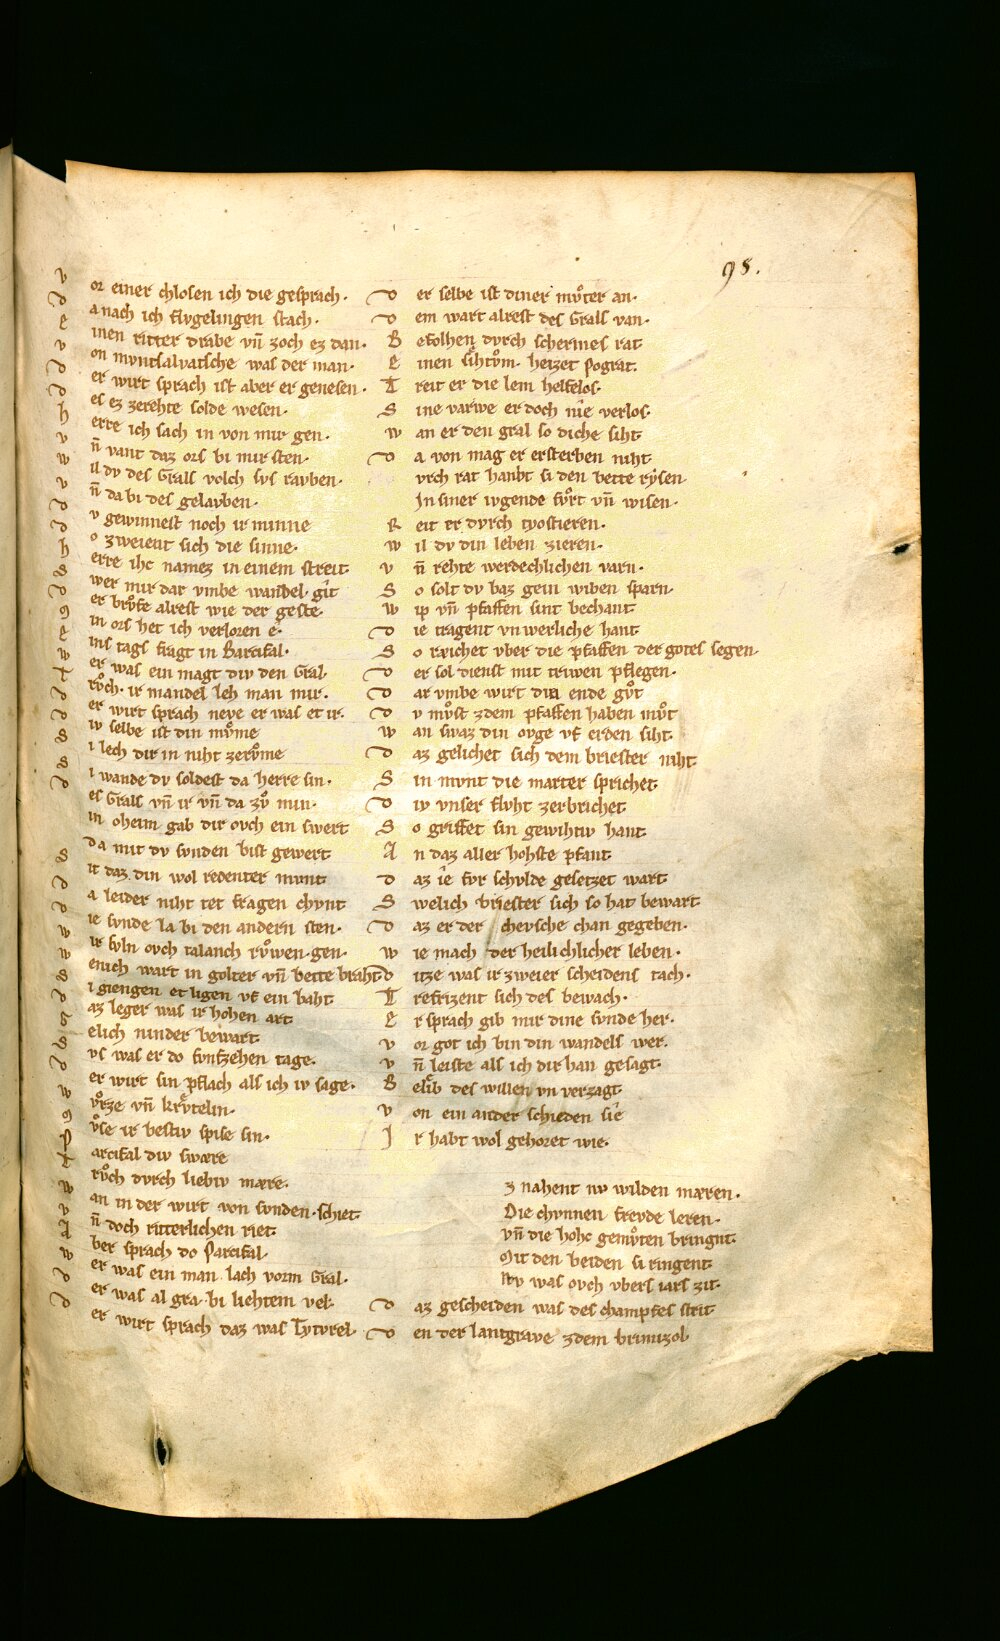 98.
vor einer chlosen ich die gesprach.
danach ich flvgelingen stach.
einen ritter drabe vn̄ zoch ez dan.
von mvntsalvatsche was der man.
der wirt sprach ist aber er genesen.
des ez zerehte solde wesen.
herre ich sach in von mir gen.
vn̄ vant daz ors bi mir sten.
wil dv des Grals volch svs ravben.
vn̄ da bi des gelavben.
dv gewinnest noch ir minne
do zweient sich die sinne.
herre ihc namez in einem streit
swer mir dar vmbe wandel git
der brvͦfe alrest wie der geste
min ors het ich verloren e.
eins tags fragt in Parcifal.
wer was ein magt div den Gral
trvͦch. ir mandel leh man mir.
der wirt sprach neve er was et ir.
div selbe ist din mvͦme
si lech dir in niht zervͦme
si wande dv soldest da herre sin.
des Grals vn̄ ir vn̄ da zvͦ min.
din oheim gab dir ovch ein swert
da mit dv svnden bist gewert
sit daz din wol redenter mvnt
da leider niht tet fragen chvnt
die svnde la bi den andern sten.
wir svln ovch talanch rvͦwen gen.
wenich wart in golter vn̄ bette braht
si giengen et ligen vf ein baht
daz leger was ir hohen art
gelich ninder bewart
svs was er do fvnfzehen tage.
der wirt sin pflach als ich iv sage.
wvͦrze vn̄ krvͤtelin.
mvͦse ir bestiv spise sin.
Parcifal div swære
trvͦch dvrch liebiv mære.
wan in der wirt von svnden schiet
vn̄ doch ritterlichen riet
Aber sprach do Parcifal.
wer was ein man lach vorm Gral.
der was al gra bi liehtem vel.
der wirt sprach daz was Tytvrel
der selbe ist diner mvͦter an.
dem wart alrest des Grals van
Befolhen dvrch schermes rat
Einen sihtvͦm. heizet pograt.
Treit er die lem helfelos.
Sine varwe er doch nie verlos.
wan er den gral so diche siht
da von mag er ersterben niht
vrch rat hanbt si den bette rysen
In siner ivgende fvͦrt vn̄ wisen.
Reit er dvrch tyostieren.
wil dv din leben zieren.
vn̄ rehte werdechlichen varn.
So solt dv haz gein wiben sparn.
wip vn̄ pfaffen sint bechant
die tragent vnwerliche hant
So reichet vber die pfaffen der gotes segen.
der sol dienst mit triwen pflegen.
dar vmbe wirt din ende gvͦt
dv mvͦst zdem pfaffen haben mvͦt
wan swaz din ovge vf erden siht
daz gelichet sich dem briester niht
Sin mvnt die marter sprichet
div vnser flvht zerbrichet
So griffet sin gewihtiv hant
An daz aller hohste pfant
daz ie fvr schvlde gesetzet wart
Swelich briester sich so hat bewart
daz er der chevsche chan gegeben.
wie mach der heilichlicher leben.
ditze was ir zweier scheidens tach.
Trefrizent sich des bewach.
Er sprach gib mir dine svnde her.
vor got ich bin din wandels wer.
vn̄ leiste als ich dir han gesagt
Belib des willen vnverzagt
von ein ander schieden sie
Ir habt wol gehoret wie.
z nahent nv wilden mæren.
Die chvnnen frevde leren.
vn̄ die hohe gemvͦten bringnt.
Mit den beiden si ringent
Nv was ovch vbers iars zit.
daz gescheiden was des champfes strit
den der lantgrave zdem brimizol